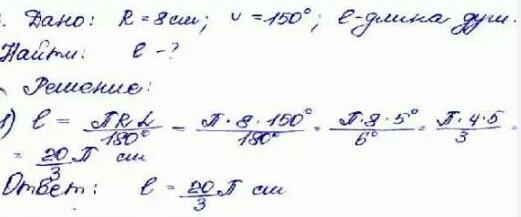 . Дано: R = 8 см; ∪ = 150°; ℓ - длина дуги.
Найти: ℓ - ?
Решение:
1) ℓ = ПRα/180° = П·8·150°/180° = П·8·5°/6° = П·4·5/3 =
= 20/3 П см
Ответ: ℓ = 20/3 П см